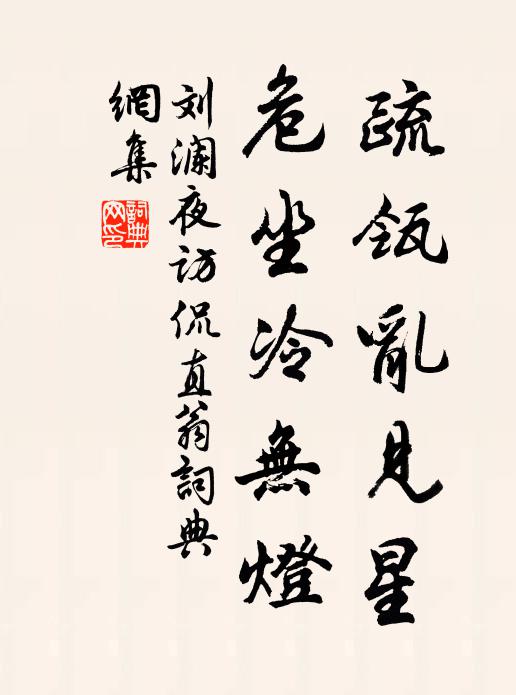 疏瓴亂見星
危坐冷無燈
刘澜夜访侃直翁詞典
網集
詞典網印